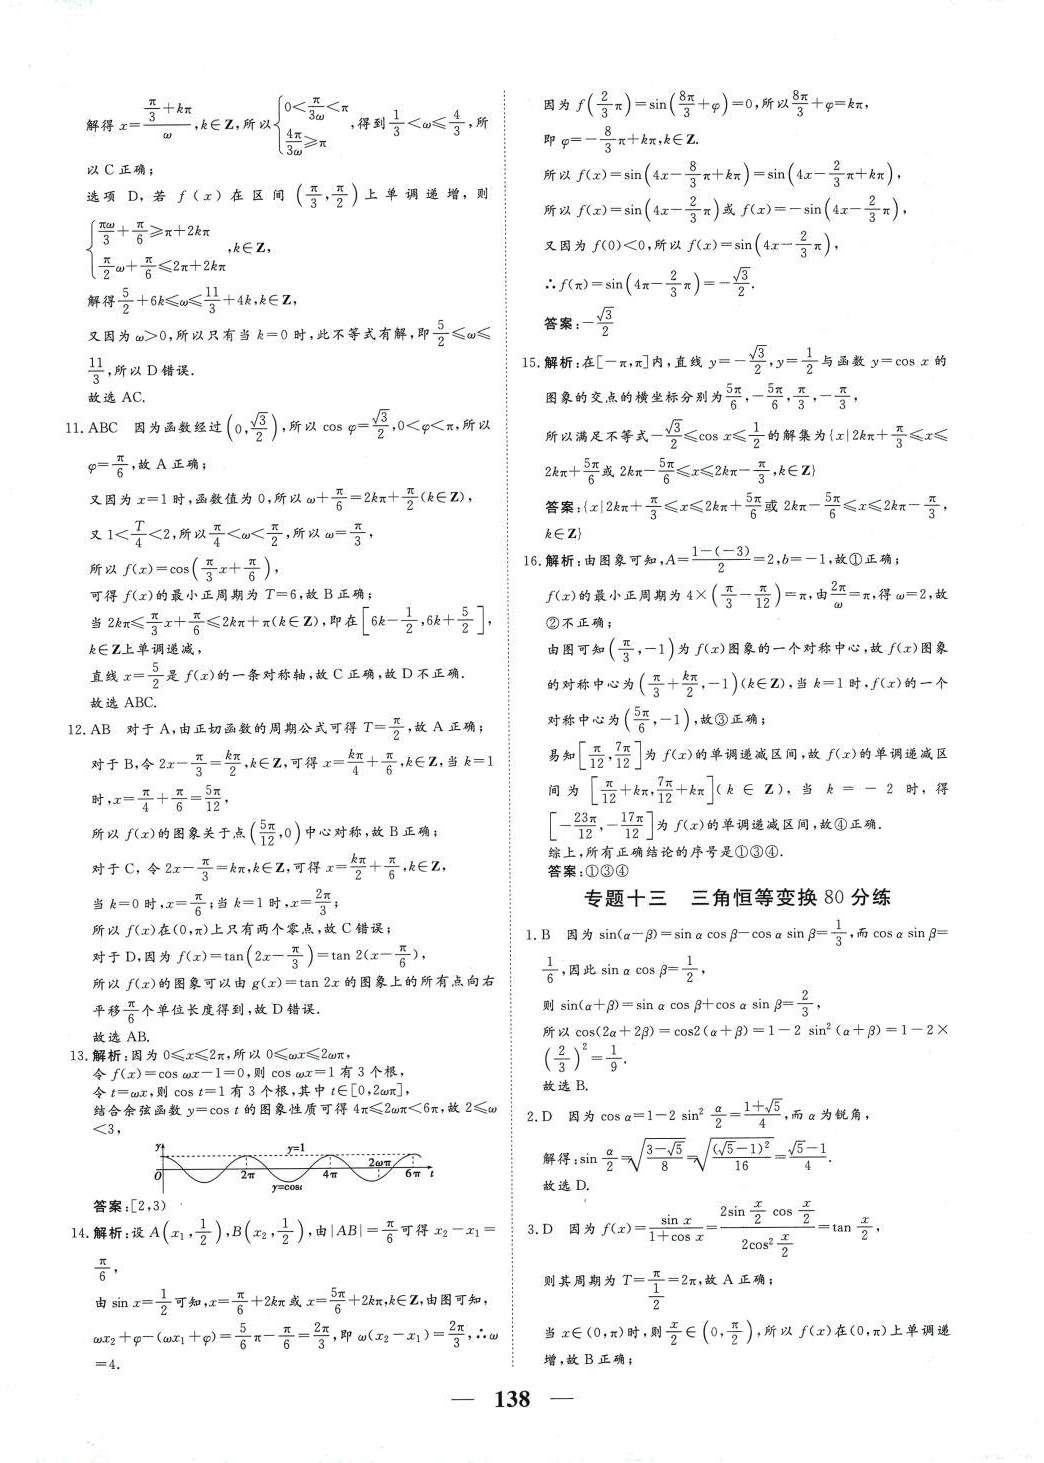 解得 x=\frac{\frac{π}{3}+kπ}{ω},k∈Z,所以{0<\frac{π}{3ω}<π, \frac{4π}{3ω}⩾π,得到\frac{1}{3}<ω⩽\frac{4}{3},所
以 C 正确;
选项 D,若 f(x)在区间(\frac{π}{3},\frac{π}{2})上单调递增,则
{\frac{πω}{3}+\frac{π}{6}⩾π+2kπ
\frac{π}{2}ω+\frac{π}{6}⩽2π+2kπ ,k∈Z,
解得\frac{5}{2}+6k⩽ω⩽\frac{11}{3}+4k,k∈Z,
又因为 ω>0,所以只有当 k=0 时,此不等式有解,即\frac{5}{2}⩽ω⩽
\frac{11}{3},所以 D 错误.
故选 AC.
11. ABC 因为函数经过(0,\frac{√3}{2}),所以 cos φ=\frac{√3}{2},0<φ<π,所以
φ=\frac{π}{6},故 A 正确;
又因为 x=1 时,函数值为 0,所以 ω+\frac{π}{6}=2kπ+\frac{π}{2}(k∈Z),
又 1<\frac{T}{4}<2,所以\frac{π}{4}<ω<\frac{π}{2},所以 ω=\frac{π}{3},
所以 f(x)=cos(\frac{π}{3}x+\frac{π}{6}),
可得 f(x)的最小正周期为 T=6,故 B 正确;
当 2kπ⩽\frac{π}{3}x+\frac{π}{6}⩽2kπ+π(k∈Z),即在[6k-\frac{1}{2},6k+\frac{5}{2}],
k∈Z上单调递减,
直线 x=\frac{5}{2}是 f(x)的一条对称轴,故 C 正确,故 D 不正确.
故选 ABC.
12. AB 对于 A,由正切函数的周期公式可得 T=\frac{π}{2},故 A 正确;
对于 B,令 2x-\frac{π}{3}=\frac{kπ}{2},k∈Z,可得 x=\frac{kπ}{4}+\frac{π}{6},k∈Z,当 k=1
时,x=\frac{π}{4}+\frac{π}{6}=\frac{5π}{12},
所以 f(x)的图象关于点(\frac{5π}{12},0)中心对称,故 B 正确;
对于 C,令 2x-\frac{π}{3}=kπ,k∈Z,可得 x=\frac{kπ}{2}+\frac{π}{6},k∈Z,
当 k=0 时,x=\frac{π}{6};当 k=1 时,x=\frac{2π}{3};
所以 f(x)在(0,π)上只有两个零点,故 C 错误;
对于 D,因为 f(x)=tan(2x-\frac{π}{3})=tan 2(x-\frac{π}{6}),
所以 f(x)的图象可以由 g(x)=tan 2x 的图象上的所有点向右
平移\frac{π}{6}个单位长度得到,故 D 错误.
故选 AB.
13. 解析:因为 0⩽x⩽2π,所以 0⩽ωx⩽2ωπ,
令 f(x)=cos ωx-1=0,则 cos ωx=1 有 3 个根,
令 t=ωx,则 cos t=1 有 3 个根,其中 t∈[0,2ωπ],
结合余弦函数 y=cos t 的图象性质可得 4π⩽2ωπ<6π,故 2⩽ω
<3,
y y=1
O 2π 4π 2ωπ 6π t
y=cost
答案:[2,3)
14. 解析:设 A(x₁,\frac{1}{2}),B(x₂,\frac{1}{2}),由|AB|=\frac{π}{6}可得 x₂-x₁=
\frac{π}{6},
由 sin x=\frac{1}{2}可知,x=\frac{π}{6}+2kπ 或 x=\frac{5π}{6}+2kπ,k∈Z,由图可知,
ωx₂+φ-(ωx₁+φ)=\frac{5}{6}π-\frac{π}{6}=\frac{2π}{3},即 ω(x₂-x₁)=\frac{2π}{3},∴ω
=4.
因为 f(\frac{2}{3}π)=sin(\frac{8π}{3}+φ)=0,所以\frac{8π}{3}+φ=kπ,
即 φ=-\frac{8}{3}π+kπ,k∈Z.
所以 f(x)=sin(4x-\frac{8}{3}π+kπ)=sin(4x-\frac{2}{3}π+kπ),
所以 f(x)=sin(4x-\frac{2}{3}π)或 f(x)=-sin(4x-\frac{2}{3}π),
又因为 f(0)<0,所以 f(x)=sin(4x-\frac{2}{3}π),
∴f(π)=sin(4π-\frac{2}{3}π)=-\frac{√3}{2}.
答案:-\frac{√3}{2}
15. 解析:在[-π,π]内,直线 y=-\frac{√3}{2},y=\frac{1}{2}与函数 y=cos x 的
图象的交点的横坐标分别为\frac{5π}{6},-\frac{5π}{6},\frac{π}{3},-\frac{π}{3},
所以满足不等式-\frac{√3}{2}⩽cos x⩽\frac{1}{2}的解集为{x|2kπ+\frac{π}{3}⩽x⩽
2kπ+\frac{5π}{6}或 2kπ-\frac{5π}{6}⩽x⩽2kπ-\frac{π}{3},k∈Z}
答案:{x|2kπ+\frac{π}{3}⩽x⩽2kπ+\frac{5π}{6}或 2kπ-\frac{5π}{6}⩽x⩽2kπ-\frac{π}{3},
k∈Z}
16. 解析:由图象可知,A=\frac{1-(-3)}{2}=2,b=-1,故①正确;
f(x)的最小正周期为 4×(\frac{π}{3}-\frac{π}{12})=π,由\frac{2π}{ω}=π,得 ω=2,故
②不正确;
由图可知(\frac{π}{3},-1)为 f(x)图象的一个对称中心,故 f(x)图象
的对称中心为(\frac{π}{3}+\frac{kπ}{2},-1)(k∈Z),当 k=1 时,f(x)的一个
对称中心为(\frac{5π}{6},-1),故③正确;
易知[\frac{π}{12},\frac{7π}{12}]为 f(x)的单调递减区间,故 f(x)的单调递减区
间为[\frac{π}{12}+kπ,\frac{7π}{12}+kπ](k∈Z),当 k=-2 时,得
[-\frac{23π}{12},-\frac{17π}{12}]为 f(x)的单调递减区间,故④正确.
综上,所有正确结论的序号是①③④.
答案:①③④
专题十三 三角恒等变换 80 分练
1. B 因为 sin(α-β)=sin α cos β-cos α sin β=\frac{1}{3},而 cos α sin β=
\frac{1}{6},因此 sin α cos β=\frac{1}{2},
则 sin(α+β)=sin α cos β+cos α sin β=\frac{2}{3},
所以 cos(2α+2β)=cos2(α+β)=1-2 sin²(α+β)=1-2×
(\frac{2}{3})²=\frac{1}{9}.
故选 B.
2. D 因为 cos α=1-2 sin²\frac{α}{2}=\frac{1+√5}{4},而 α 为锐角,
解得:sin\frac{α}{2}=√\frac{3-√5}{8}=√\frac{(√5-1)²}{16}=\frac{√5-1}{4}.
故选 D.
3. D 因为 f(x)=\frac{sin x}{1+cos x}=\frac{2sin\frac{x}{2}cos\frac{x}{2}}{2cos²\frac{x}{2}}=tan\frac{x}{2},
则其周期为 T=\frac{π}{\frac{1}{2}}=2π,故 A 正确;
当 x∈(0,π)时,则\frac{x}{2}∈(0,\frac{π}{2}),所以 f(x)在(0,π)上单调递
增,故 B 正确;
— 138 —